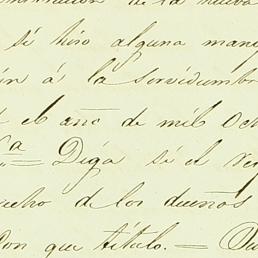 de la nueva
si hizo alguna man
á la servidumbr
el año de mil Oc
a = Diga si el re
de los dueños
con que título. =